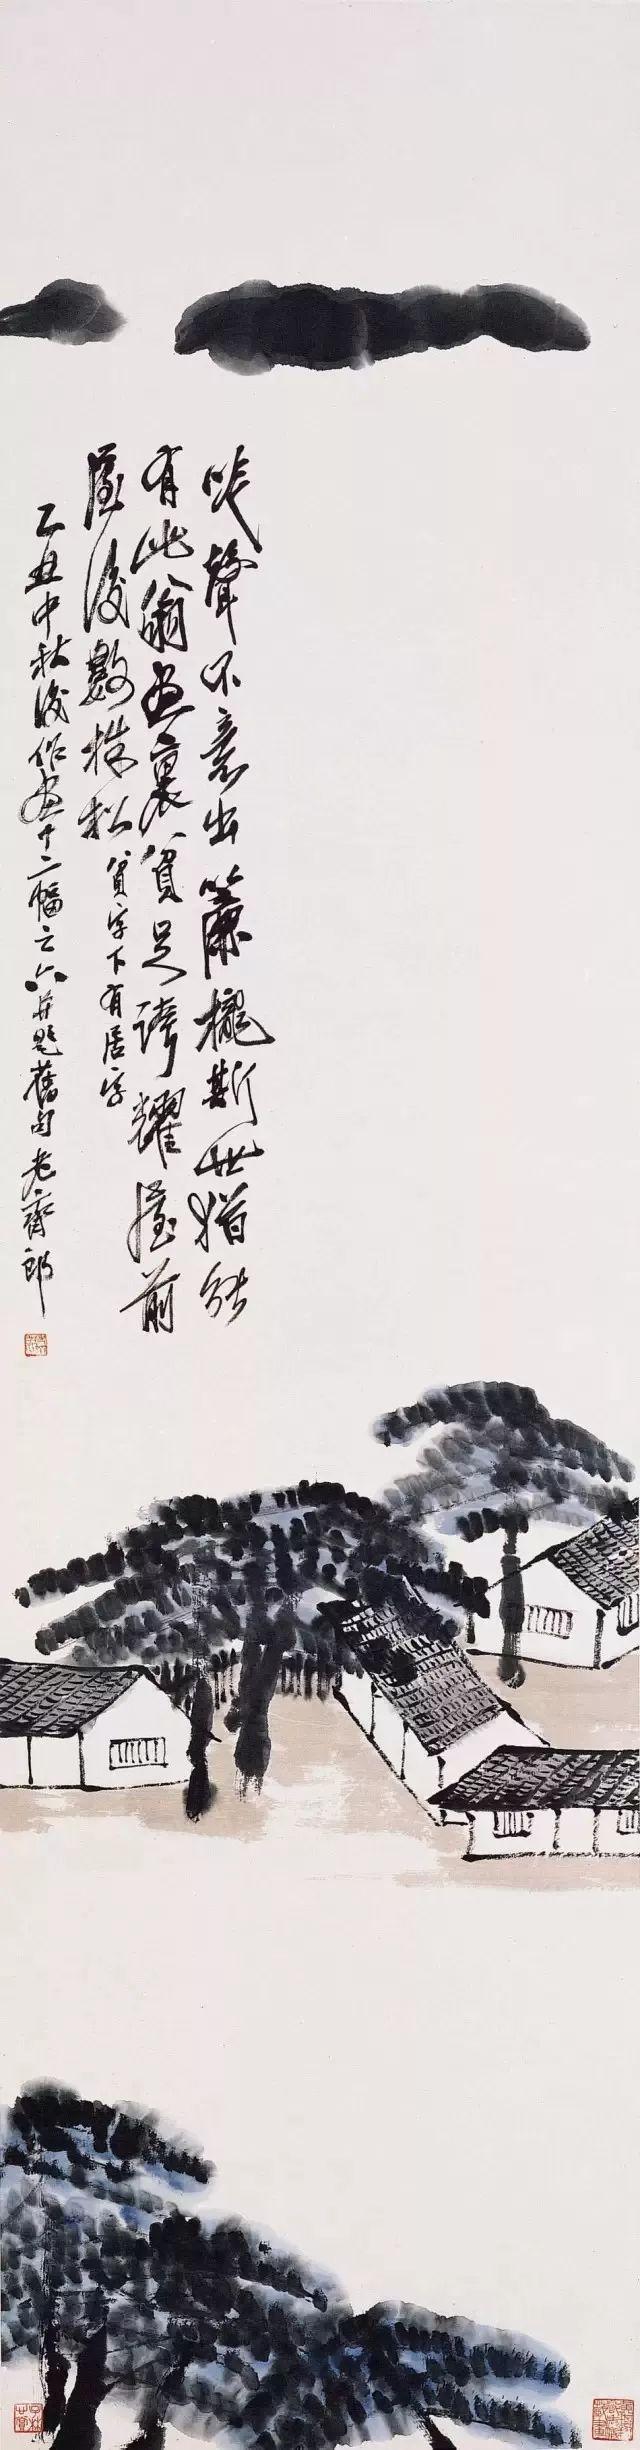 咲聲不意出簾櫳斯世猶能
有此翁畫裏貧足誇耀屋前
屋後數株松貧字下有居字
乙丑中秋後作畫十二幅之六并題舊句老齊郎